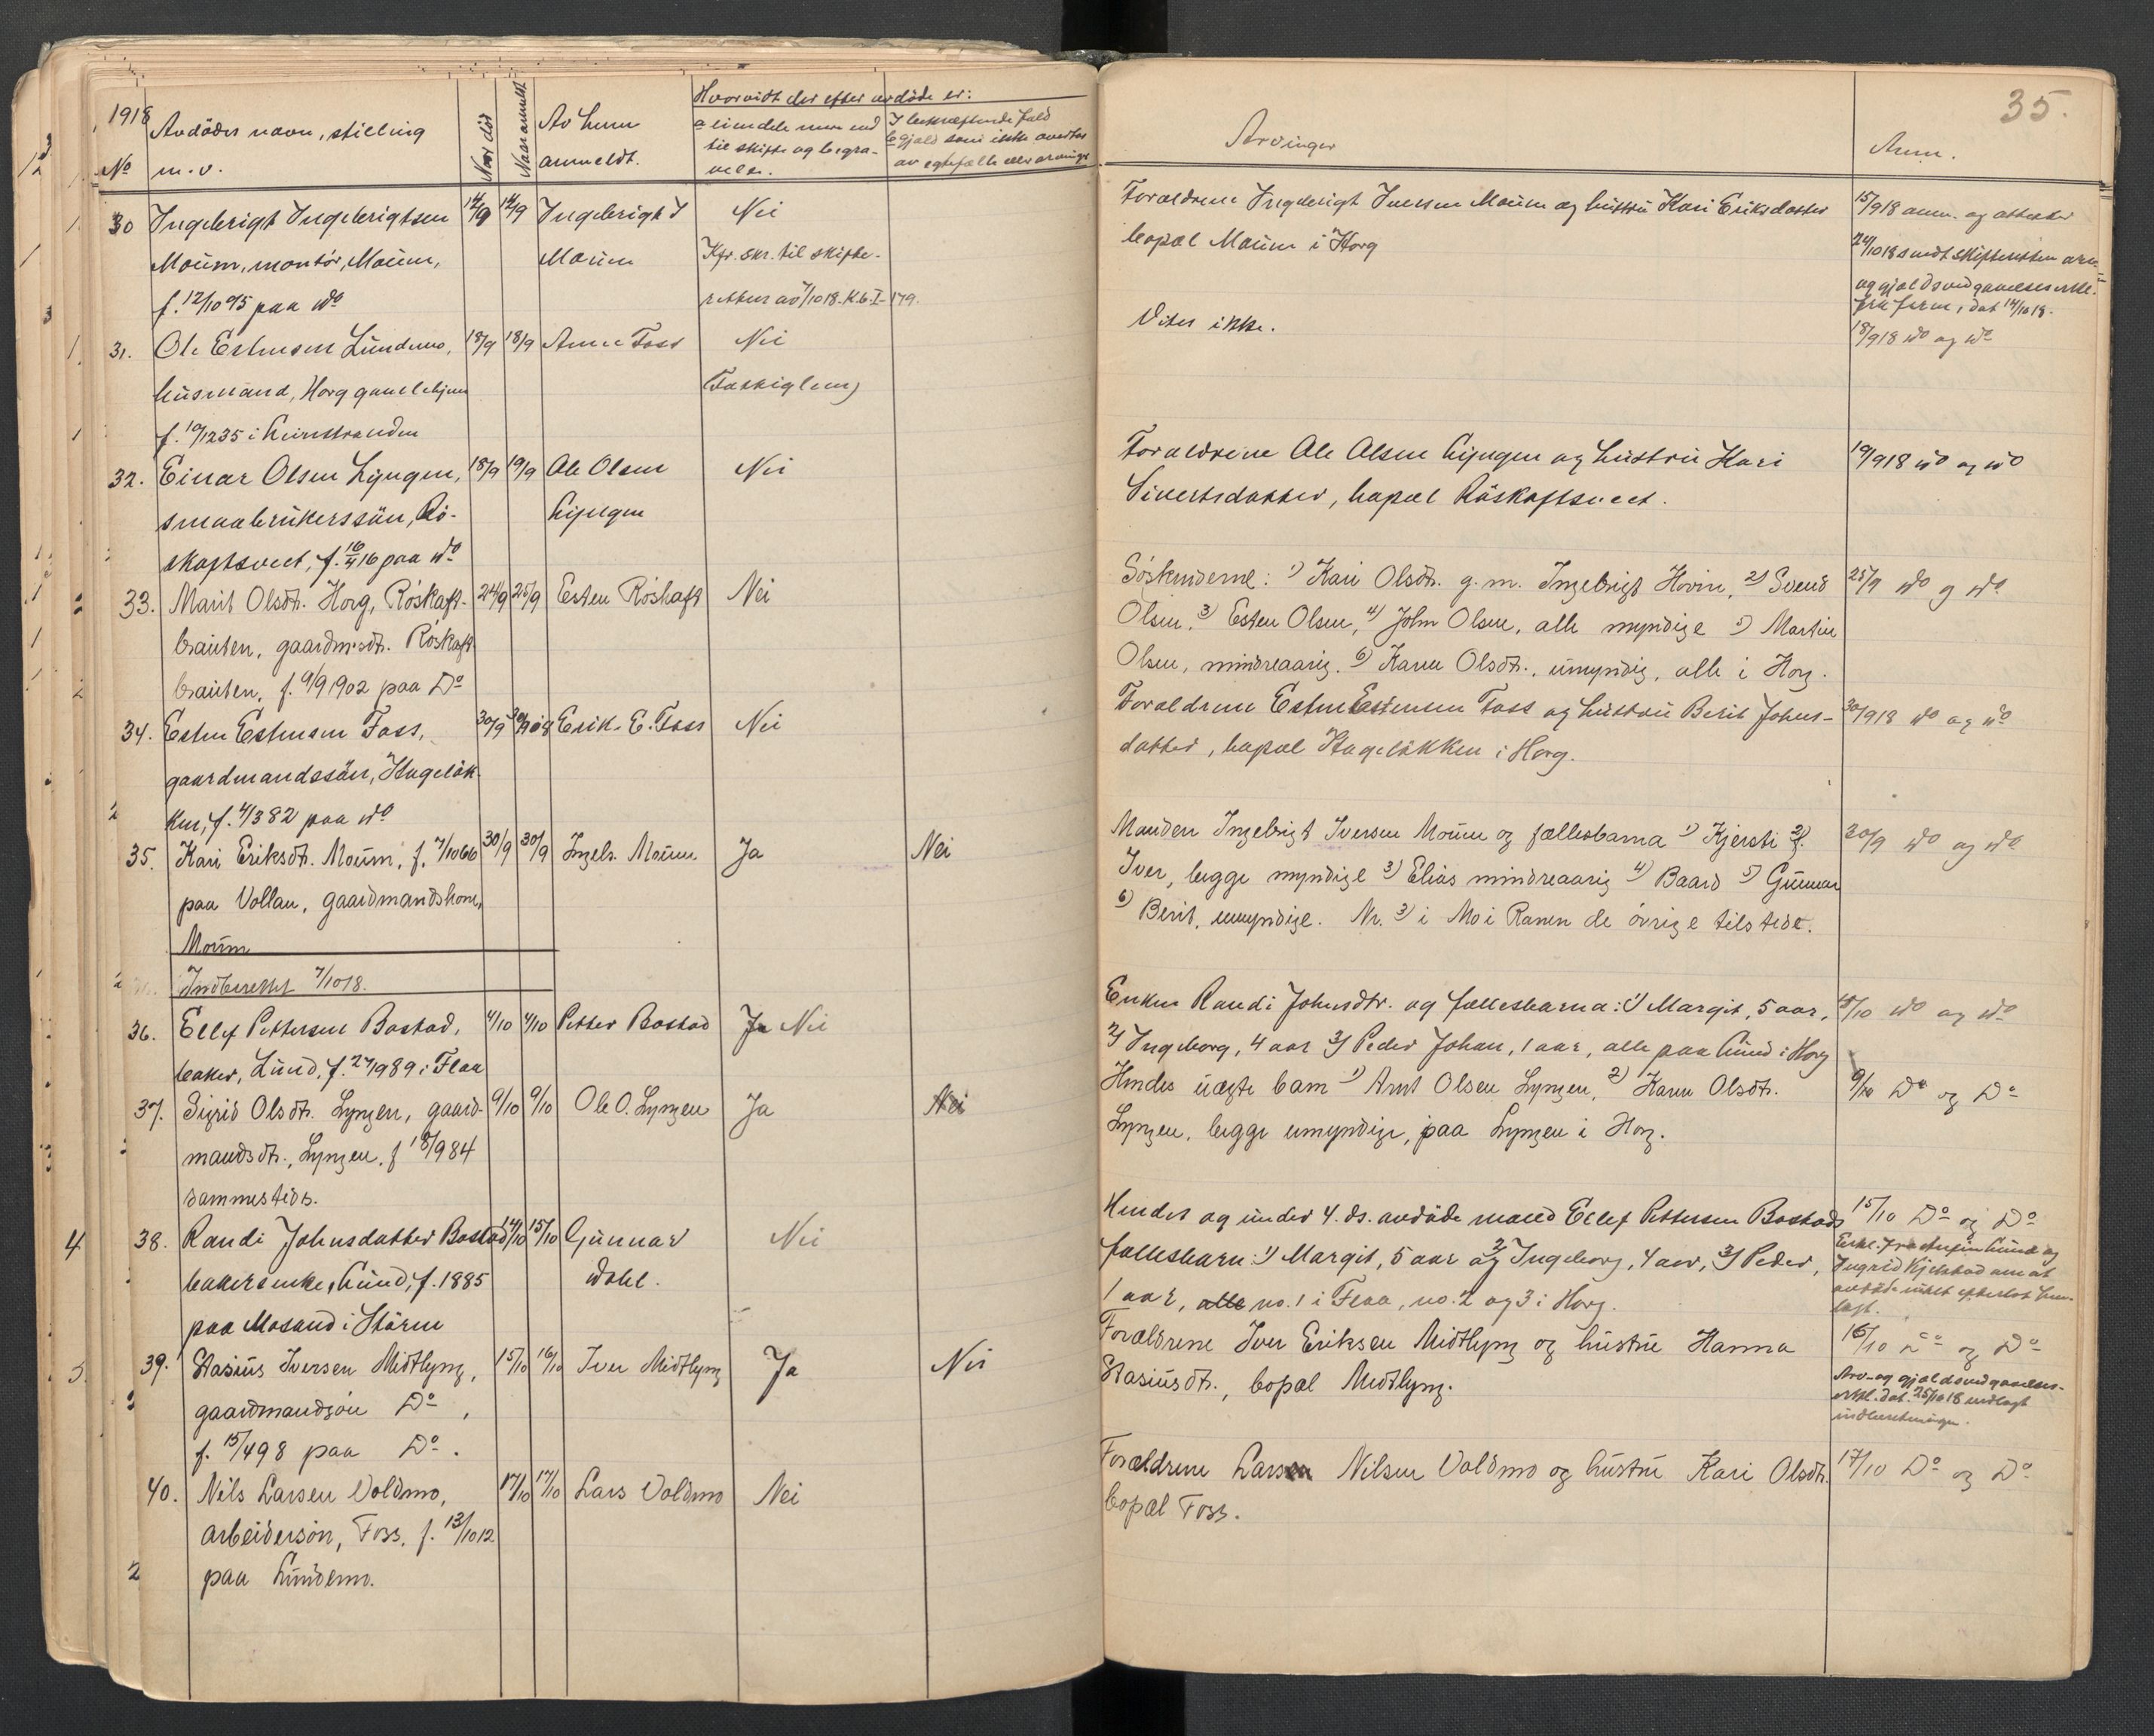 1918
No
Avdödes navn, stilling
m. v.
Naar död
Naar anmeldt
Av hvem
anmeldt.
Hvorvidt der efter avdöde er:
a eiendele mer end
til skifte og begra-
velse.
I bekræftende fald
b gjæld som ikke overtas
av egtefælle eller arvinge
30 Ingebrigt Ingebrigtsen 14/9 14/9 Ingebrigt I Nei
Moum, montör, Moum, Moum Kfr. skr. til skifte-
f. 12/10 95 paa do retten av 7/10 18. K.b. I-179.
31. Ole Estensen Lundemo, 18/9 18/9 Arne Foss Nei
husmand, Horg gamlehjem (Fattiglem)
f. 10/12 35 i Leinstranden
32. Einar Olsen Lyngen, 18/9 19/9 Ole Olsen Nei
smaabrukerssön, Rö- Lyngen
skaftsveet, f. 16/4 16 paa do
33. Marit Olsdt. Horg, Röskaft- 24/9 25/9 Esten Röskaft Nei
brauten, gaardm.dt. Röskaft
brauten, f. 9/9 1902 paa Do
34. Esten Estensen Foss, 30/9 30/9 018 Erik E. Foss Nei
gaardmandssön, Hagelök-
ken, f. 4/3 82 paa do
35. Kari Eriksdt. Moum, f. 7/10 66 30/9 30/9 Ingebr. Moum Ja Nei
paa Vollan, gaardmandskone,
Moum
Indberettet 7/10 18.
36. Ellef Pettersen Bostad, 4/10 4/10 Petter Bostad Ja Nei
baker, Lund, f. 27/9 89 i Flaa
37. Sigrid Olsdt. Lyngen, gaard- 9/10 9/10 Ole O. Lyngen Ja Nei
mandsdt., Lyngen, f 18/9 84
sammesteds.
38. Randi Johnsdatter Bostad 14/10 15/10 Gunnar Nei
bakerenke, Lund, f. 1885 Dahl.
paa Mosand i Stören
39. Stasius Iversen Midtlyng, 15/10 16/10 Iver Midtlyng Ja Nei
gaardmandsön Do,
f. 15/4 98 paa Do.
40. Nils Larsen Voldmo, 17/10 17/10 Lars Voldmo Nei
arbeidersön, Foss, f. 13/10 12
paa Lundemo.
35.
Arvinger
Anm.
Forældrene Ingebrigt Iversen Moum og hustru Kari Eriksdatter 15/9 18 anm. og attester
bopæl Moum i Horg 24/10 18 sendt skifteretten arv-
og gjældsvedgaaelseserkl.
fra foræ., dat 14/10 18.
Vites ikke. 18/9 18 do og do
Forældrene Ole Olsen Lyngen og hustru Kari 19/9 18 do og do
Sivertsdatter, bopæl Röskaftsveet.
Söskenderne: 1) Kari Olsdt. g. m. Ingebrigt Hovin, 2) Svend 25/9 do g do
Olsen, 3) Esten Olsen, 4) John Olsen, alle myndige 5) Martin
Olsen, mindreaarig. 6) Karen Olsdt., umyndig, alle i Horg.
Forældrene Esten Estensen Foss og hustru Berit Johns- 30/9 18 do og do
datter, bopæl Hagelökken i Horg.
Manden Ingebrigt Iversen Moum og fællesbarna 1) Kjersti 2) 30/9 do og do
Iver, begge myndige 3) Elias mindreaarig 4) Baard 5) Gunnar
6) Berit, umyndige. Nr. 3) i Mo i Ranen de övrige tilstede.
Enken Randi Johnsdtr. og fællesbarna: 1) Margit, 5 aar, 4/10 do og do
2) Ingeborg, 4 aar 3) Peder Johan, 1 aar, alle paa Lund i Horg
Hendes uægte barn 1) Arnt Olsen Lyngen, 2) Karen Olsdt. 9/10 Do og Do
Lyngen, begge umyndige, paa Lyngen i Horg.
Hendes og under 4. ds. avdöde mand Ellef Pettersen Bostads 15/10 Do og Do
fællesbarn: 1) Margit, 5 aar og 2) Ingeborg, 4 aar, 3) Peder,
1 aar, alle no. 1 i Flaa, no. 2 og 3 i Horg.
Erkl. fra Lund og
Ingrid Kjelstad om at
avdöde intet efterlot
Forældrene Iver Eriksen Midtlyng og hustru Hanna 16/10 Do og Do
Stasiusdt., bopæl Midtlyng.
Arv- og gjældsvedgaaelses-
erkl. dat. 25/10 18 vedlagt
indberetningen.
Forældrene Lars Nilsen Voldmo og hustru Kari Olsdt. 17/10 Do og Do
bopæl Foss.